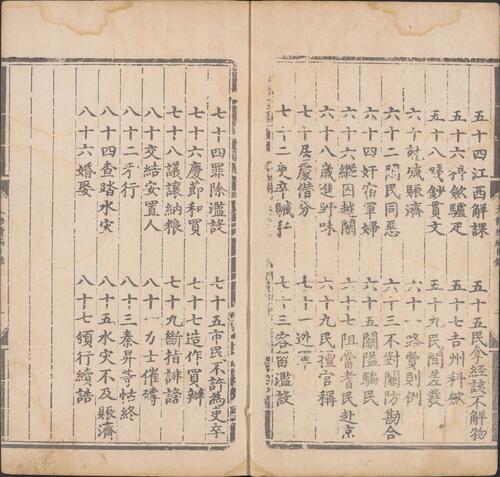 五十四江西解課 五十五民拿經該不解物
五十六科斂驢疋 五十七吉州科斂
五十八錢鈔貫文 五十九民間差發
六十尅減賑濟 六十一路費則例
六十二閑民同惡 六十三不對關防勘合
六十四奸宿軍婦 六十五關隘騙民
六十六縱囚越關 六十七阻當耆民赴京
六十八歲進野味 六十九民擅官稱
七十居處僣分 七十一逃軍
七十二吏卒贓私 七十三容留濫設
七十四罪除濫設 七十五市民不許為吏卒
七十六慶節和買 七十七造作買辦
七十八議讓納粮 七十九斷指誹謗
八十交結安置人 八十一力士催磚
八十二牙行 八十三秦昇等怙終
八十四查踏水灾 八十五水灾不及賑濟
八十六婚娶 八十七頒行續誥